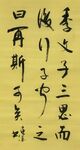 季文子三思而
後行子聞之
曰再斯可矣